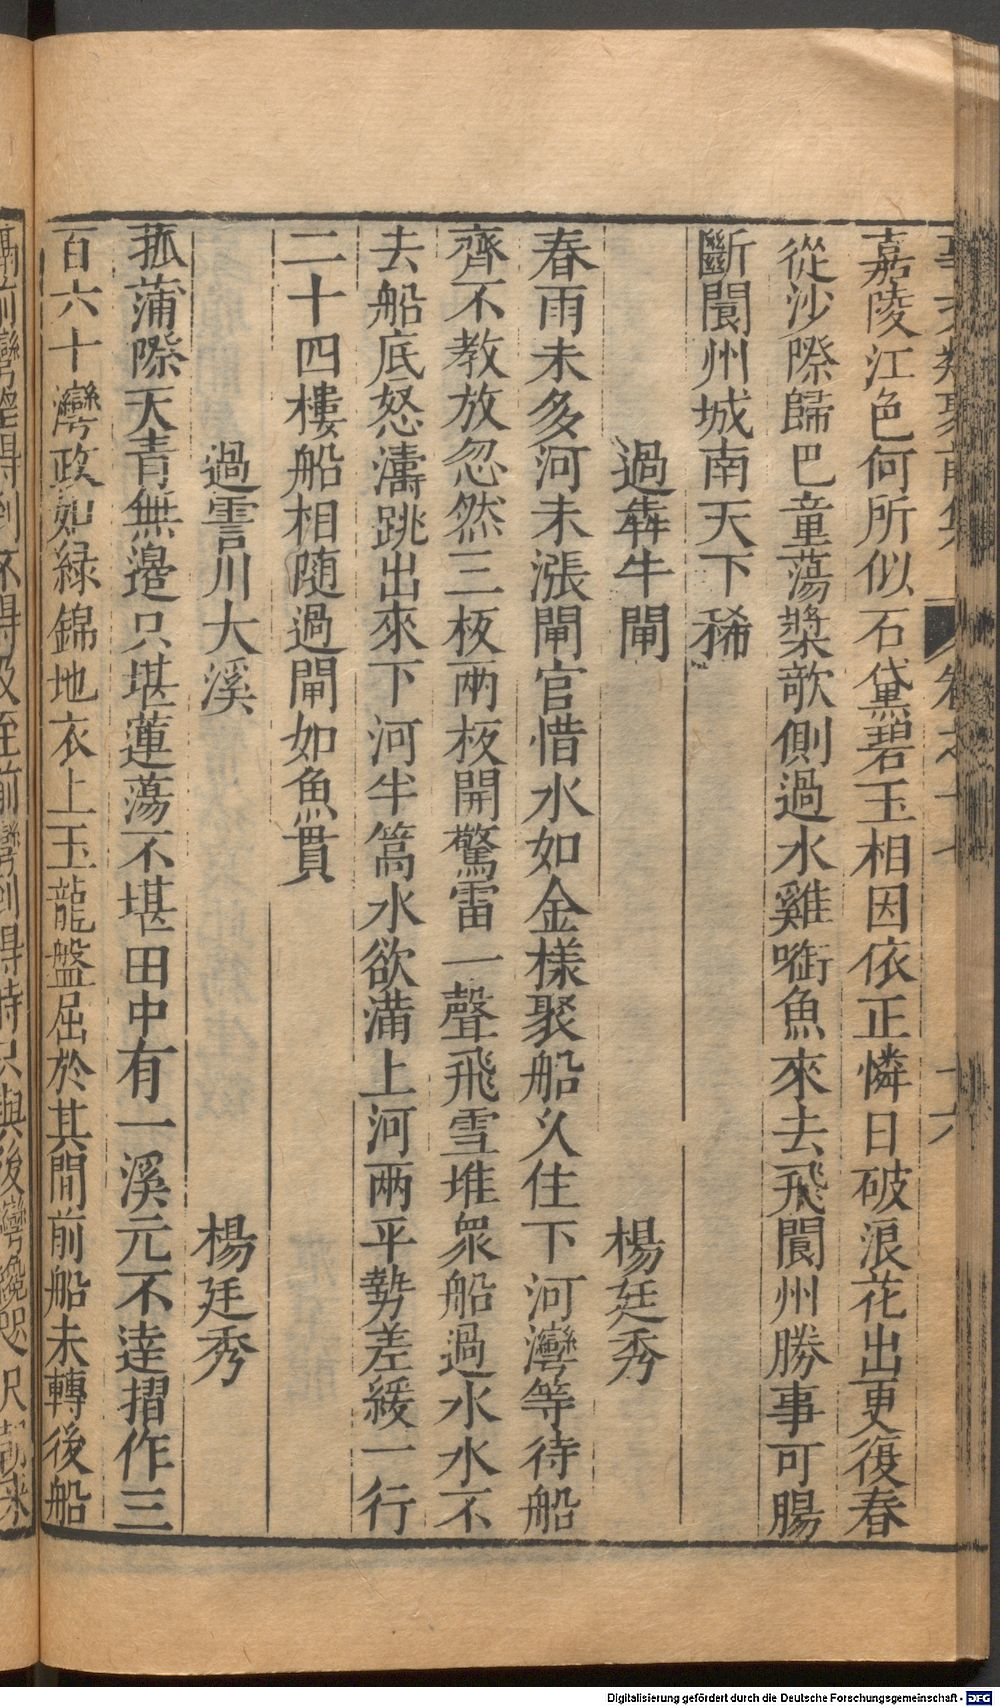 嘉陵江色何所似石黛碧玉相因依正憐日破浪花出更復春
從沙際歸巴童蕩槳欹側過水雞啣魚來去飛閬州勝事可腸
斷閬州城南天下稀
過犇牛閘 楊廷秀
春雨未多河未漲閘官惜水如金樣聚船久住下河灣等待船
齊不教放忽然三板兩板開驚雷一聲飛雪堆衆船過水水不
去船底怒濤跳出來下河半篙水欲滿上河兩平勢差緩一行
二十四樓船相随過閘如魚貫
過霅川大溪 楊廷秀
菰蒲際天青無邊只堪蓮蕩不堪田中有一溪元不逹摺作三
百六十灣政如緑錦地衣上玉龍盤屈於其間前船未轉後船
Digitalisierung gefördert durch die Deutsche Forschungsgemeinschaft - DFG